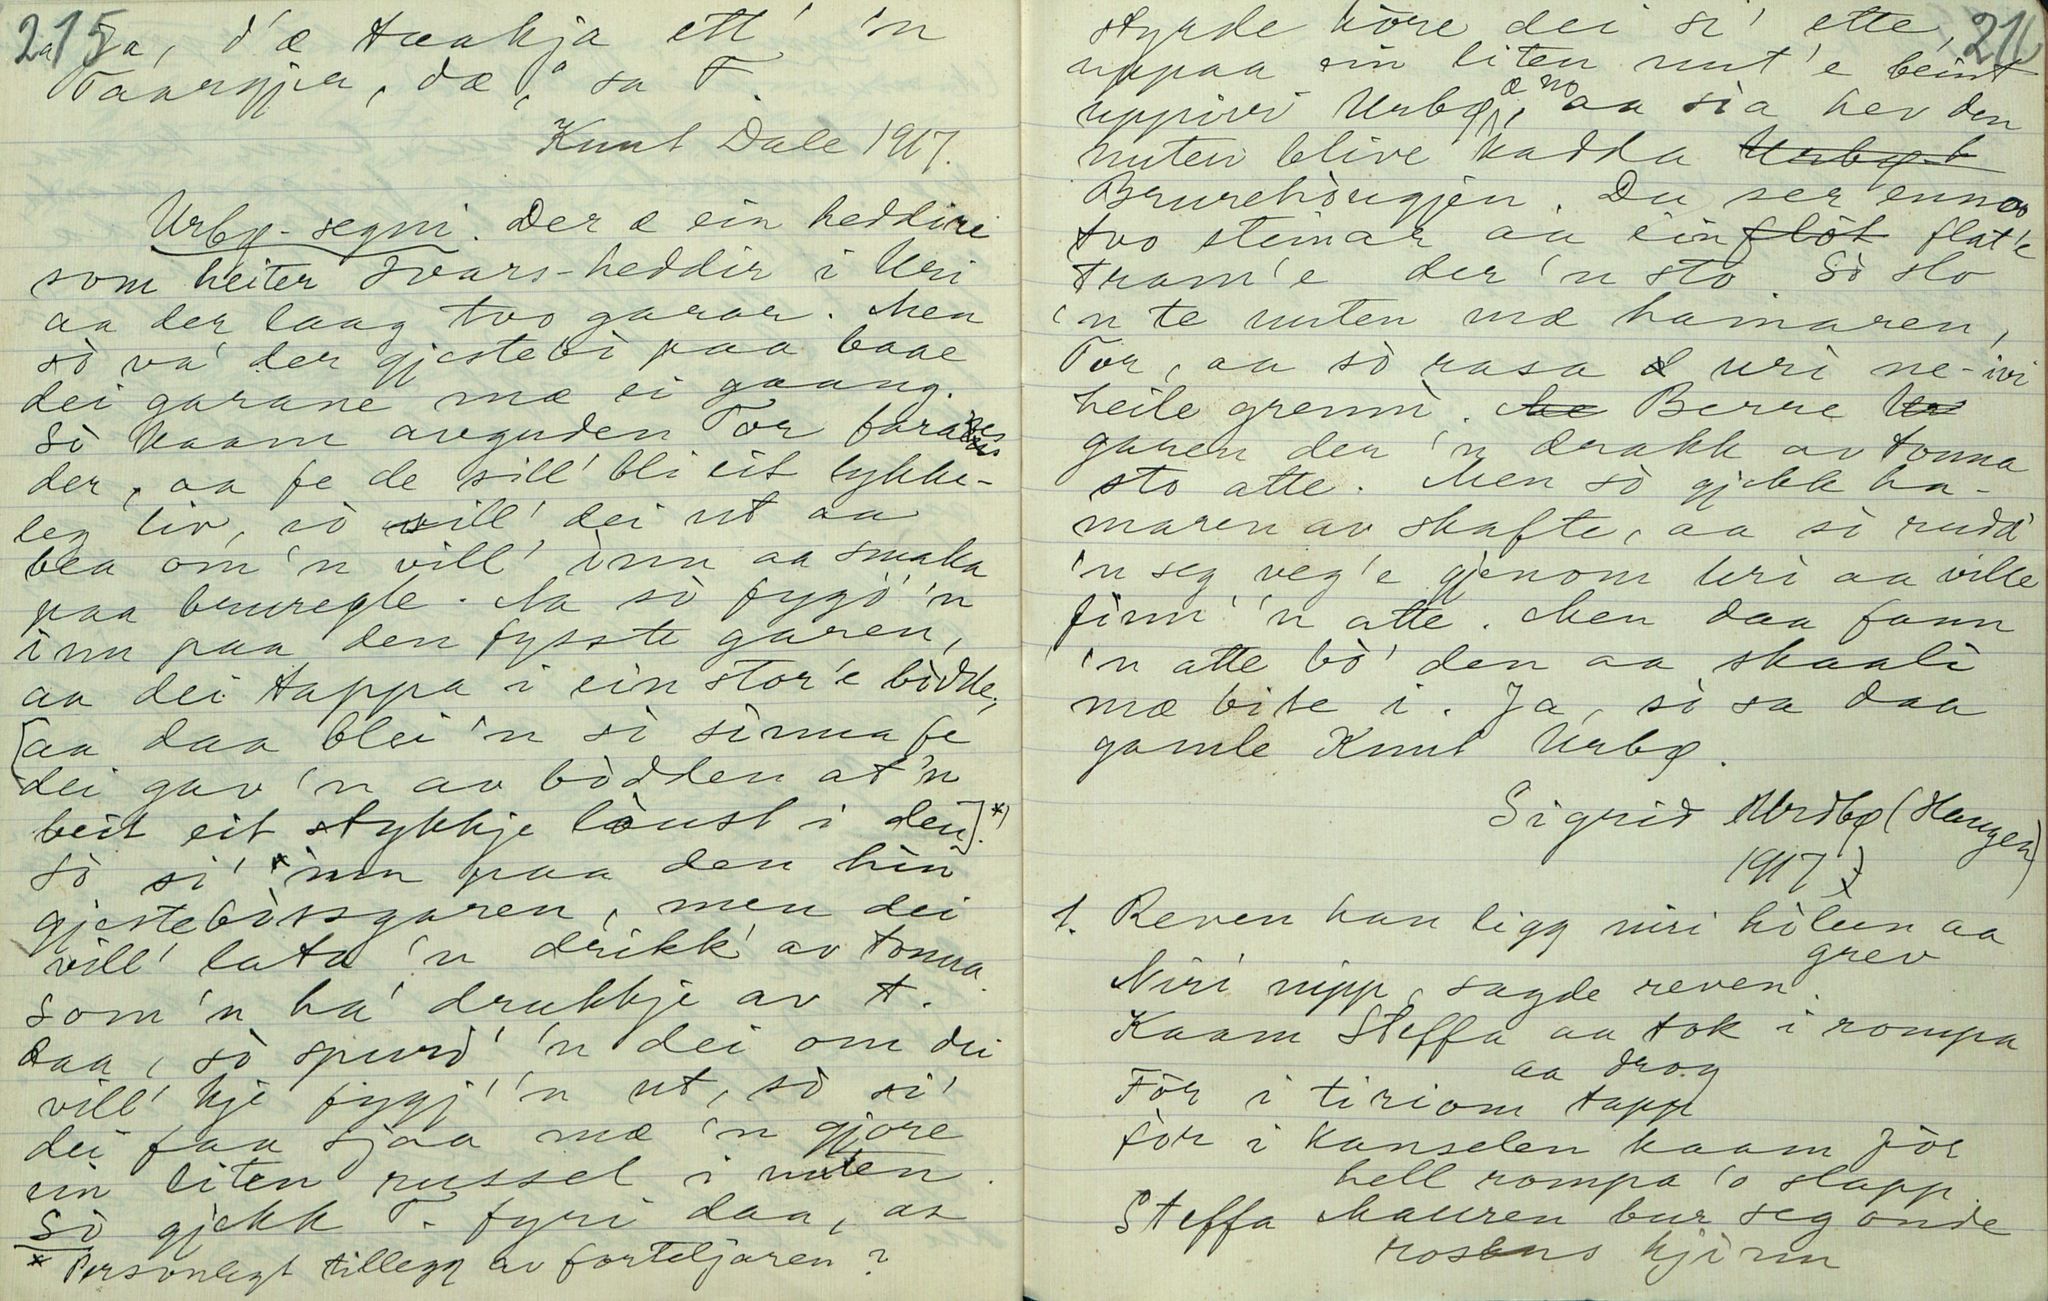 215
Ja, d'æ taakja ett' 'n
Taargjer, dæ," sa T.
Knut Dale 1917.
Urbø-segni. Der æ ein heddire
som heiter Ivars-heddir i Uri
aa der laag tvo garar. Men
sò va' der gjestebò paa baae
dei garane mæ ei gaang.
Sò kaam avguden Tor farandes
der, aa fe de sill' bli eit lykke-
leg liv, sò vill' dei ut aa
bea om 'n vill' inn aa smaka
paa bruregle. Na sò fygd' 'n
inn paa den fysste garen,
aa dei tappa i ein stor'e bòdde,
[aa daa blei 'n sò sinna fe
dei gav 'n av bòdden at 'n
beit eit stykkje laust i den].*)
Sò si' inn paa den hin
gjestebòsgaren, men dei
vill' lata 'n drikk' av tonna.
Som 'n ha' drukkje av t.
daa, sò spurd' 'n dei om dei
vill' kje fygj' 'n ut, sò si'
dei faa sjaa mæ 'n gjore
ein liten russel i nuten.
Sò gjekk T. fyri daa, aa
* Personlegt tillegg av forteljaren?
216
styrde kòre dei si' ette,
uppaa ein liten nut'e beint
uppivi Urbø, æ no aa sia hev den
nuten blive kadda Urbø-b
Brurehòugjen. Du ser ennoo
tvo steinar aa ein flòt flat'e
tram'e der 'n sto. Sò slo
'n te nuten mæ hamaren,
Tor, aa sò rasa d uri ne-ivi
heile grenni. Me Berre Ur
garen der 'n drakk av tonna
sto atte. Men sò gjekk ha-
maren av skafte, aa sò rudd'
'n seg veg'e gjenom Uri aa ville
finn' 'n atte. Men daa fann
'n atte bò' den aa skaali
mæ bite i. Ja, sò sa daa
gamle Knut Urbø.
Sigrid Urdbø (Haugen)
1917
1. Reven han ligg niri hòlun aa
grev
Niri nipp, sagde reven.
Kaam Steffa aa tok i rompa
aa drog
Fòr i tiriom tapp
fòr i kanselen kaam fòr
hell rompa 'o slapp.
Steffa Mauren bur seg onde
rosens kjinn